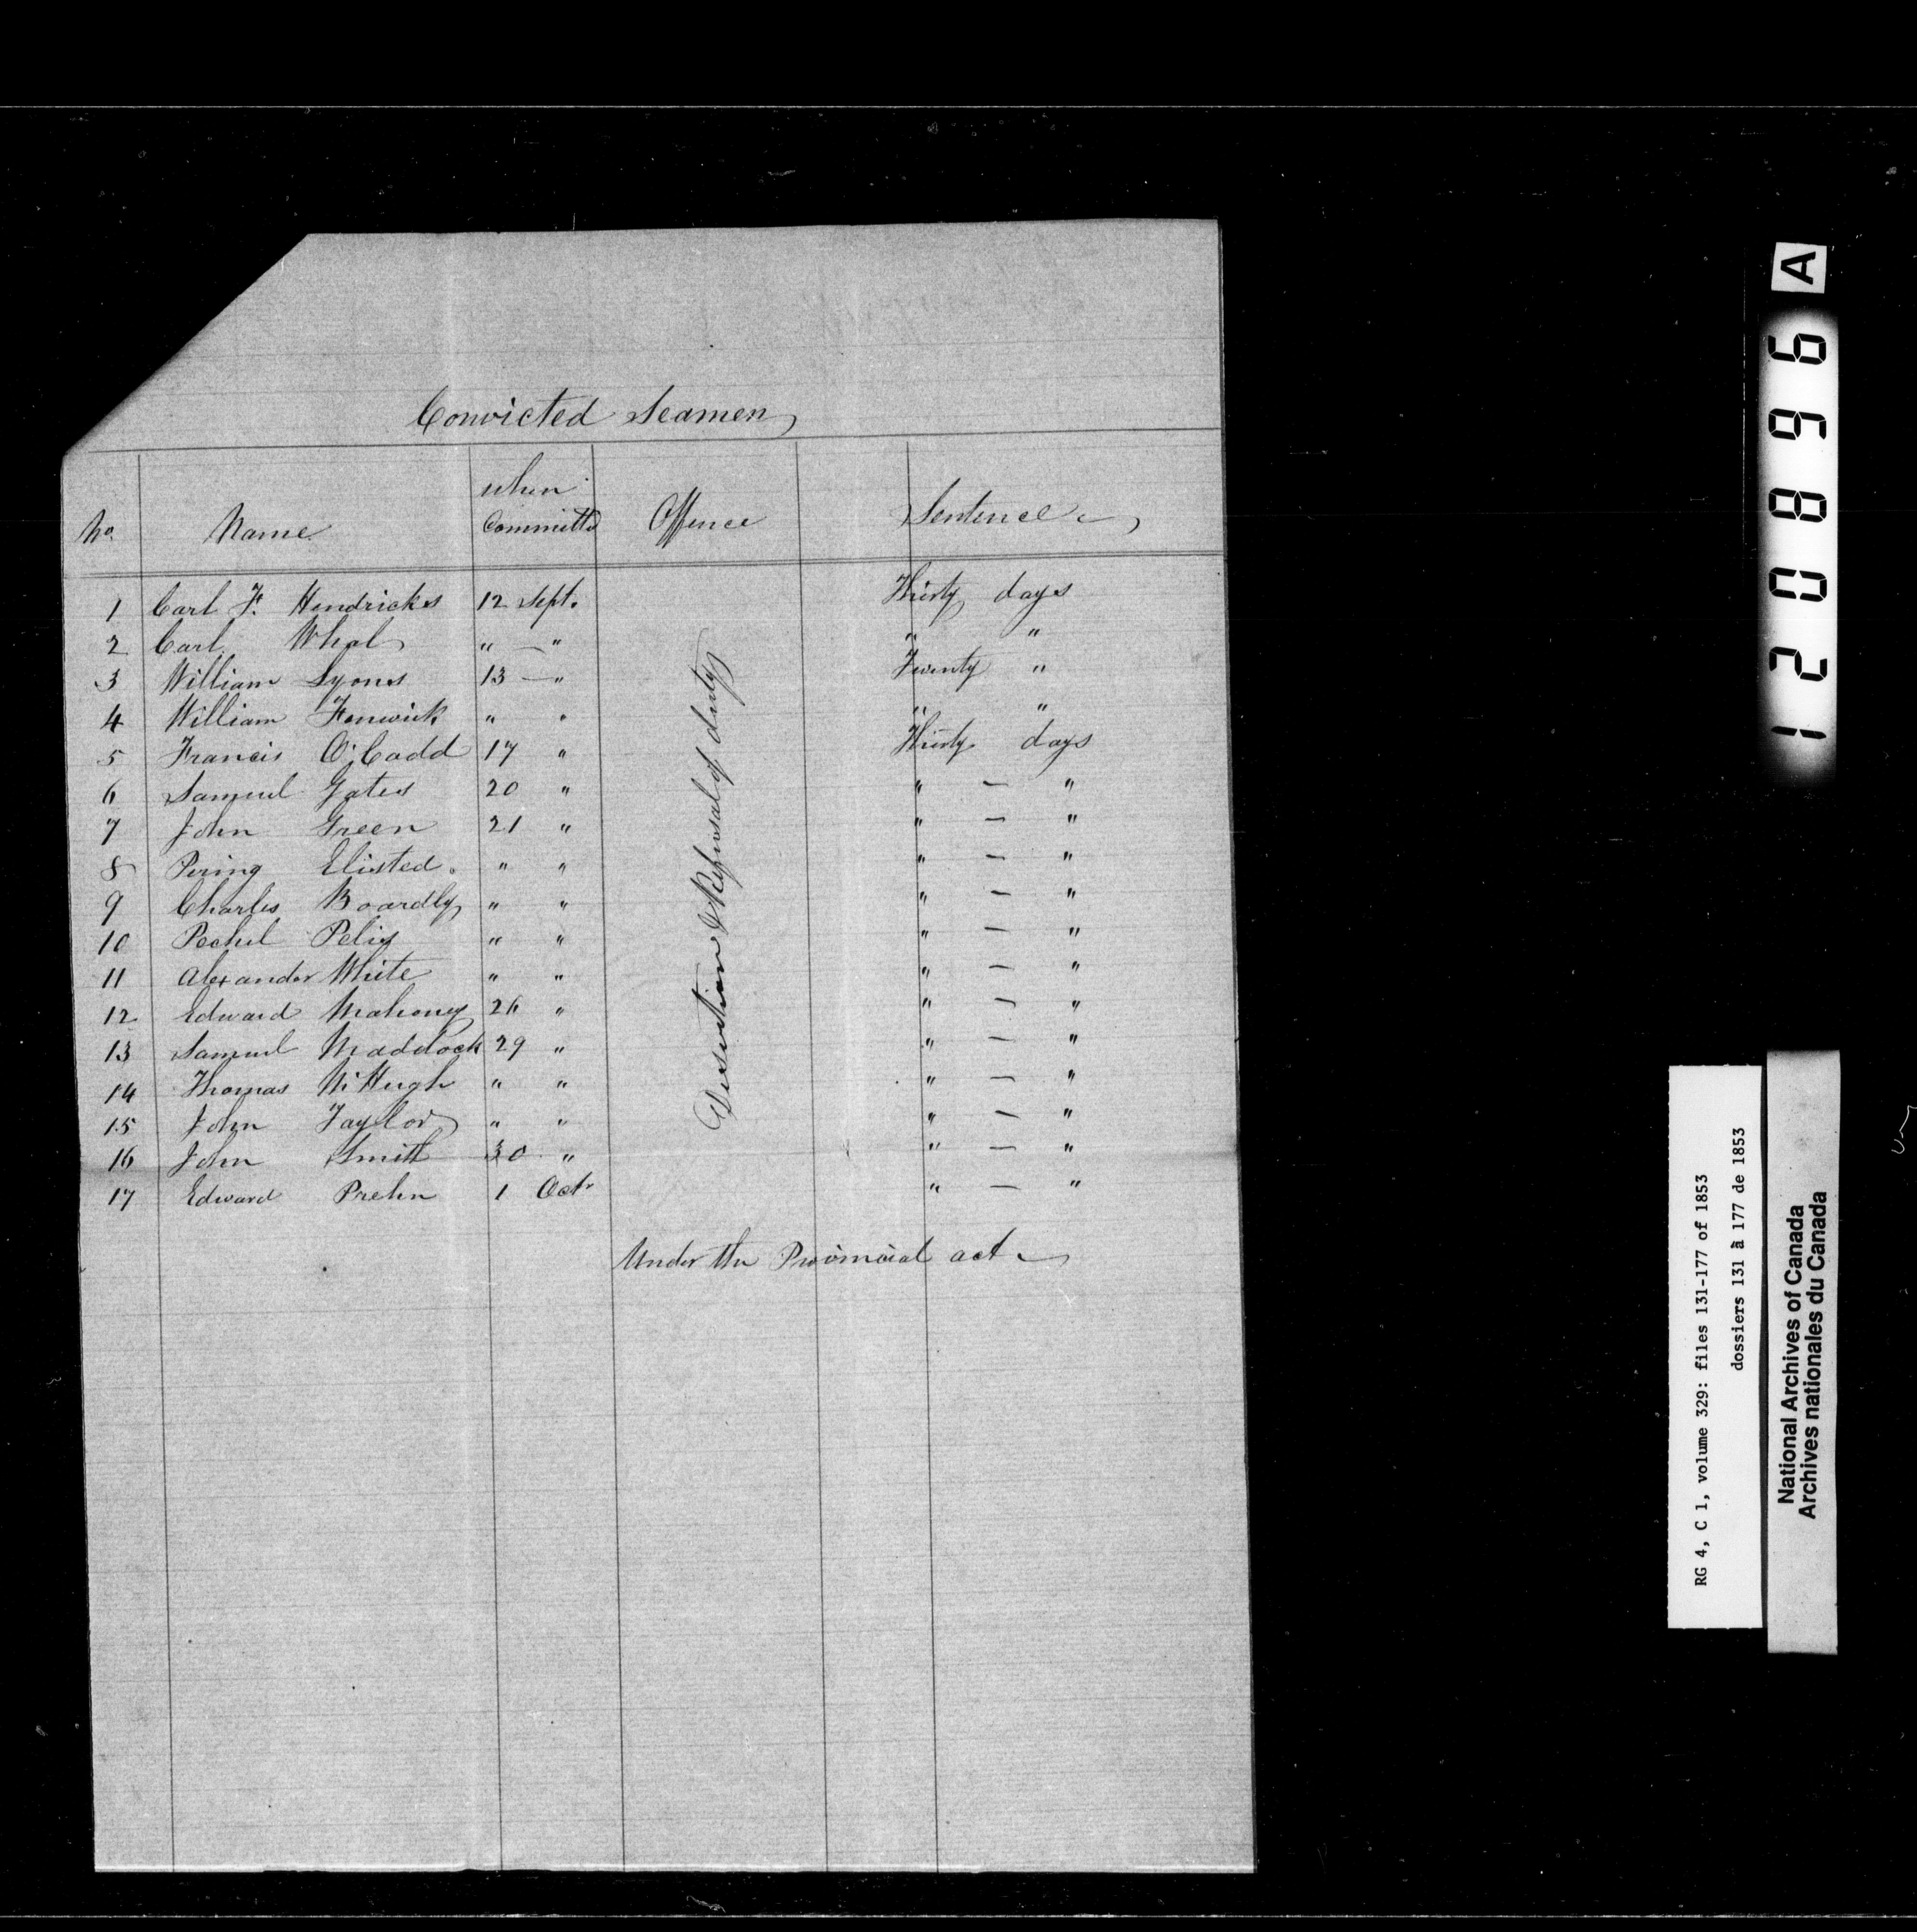 Convicted Seamen
No. Name when Committd Offence Sentence
1 Carl F. Hendricks 12 Sept. Thirty days
2 Carl Whal " — " " "
3 William Lyons 13 — " Twenty "
4 William Fenwick " " " "
5 Francis O'Cadd 17 " Thirty days
6 Samuel Gates 20 " " — "
7 John Green 21 " " — "
8 Pering Elisted. " " " — "
9 Charles Boardly " " " — "
10 Pechel Pelig " " " — "
11 Alexander White " " " — "
12 Edward Mahoney 26 " " — "
13 Samuel Maddock 29 " " — "
14 Thomas McHugh " " " — "
15 John Taylor " " " — "
16 John Smith 30 " " — "
17 Edward Prehn 1 Octr " — "
Desertion & Refusal of duty
Under the Provincial act
120896 A
RG 4, C 1, volume 329: files 131-177 of 1853
dossiers 131 à 177 de 1853
National Archives of Canada
Archives nationales du Canada